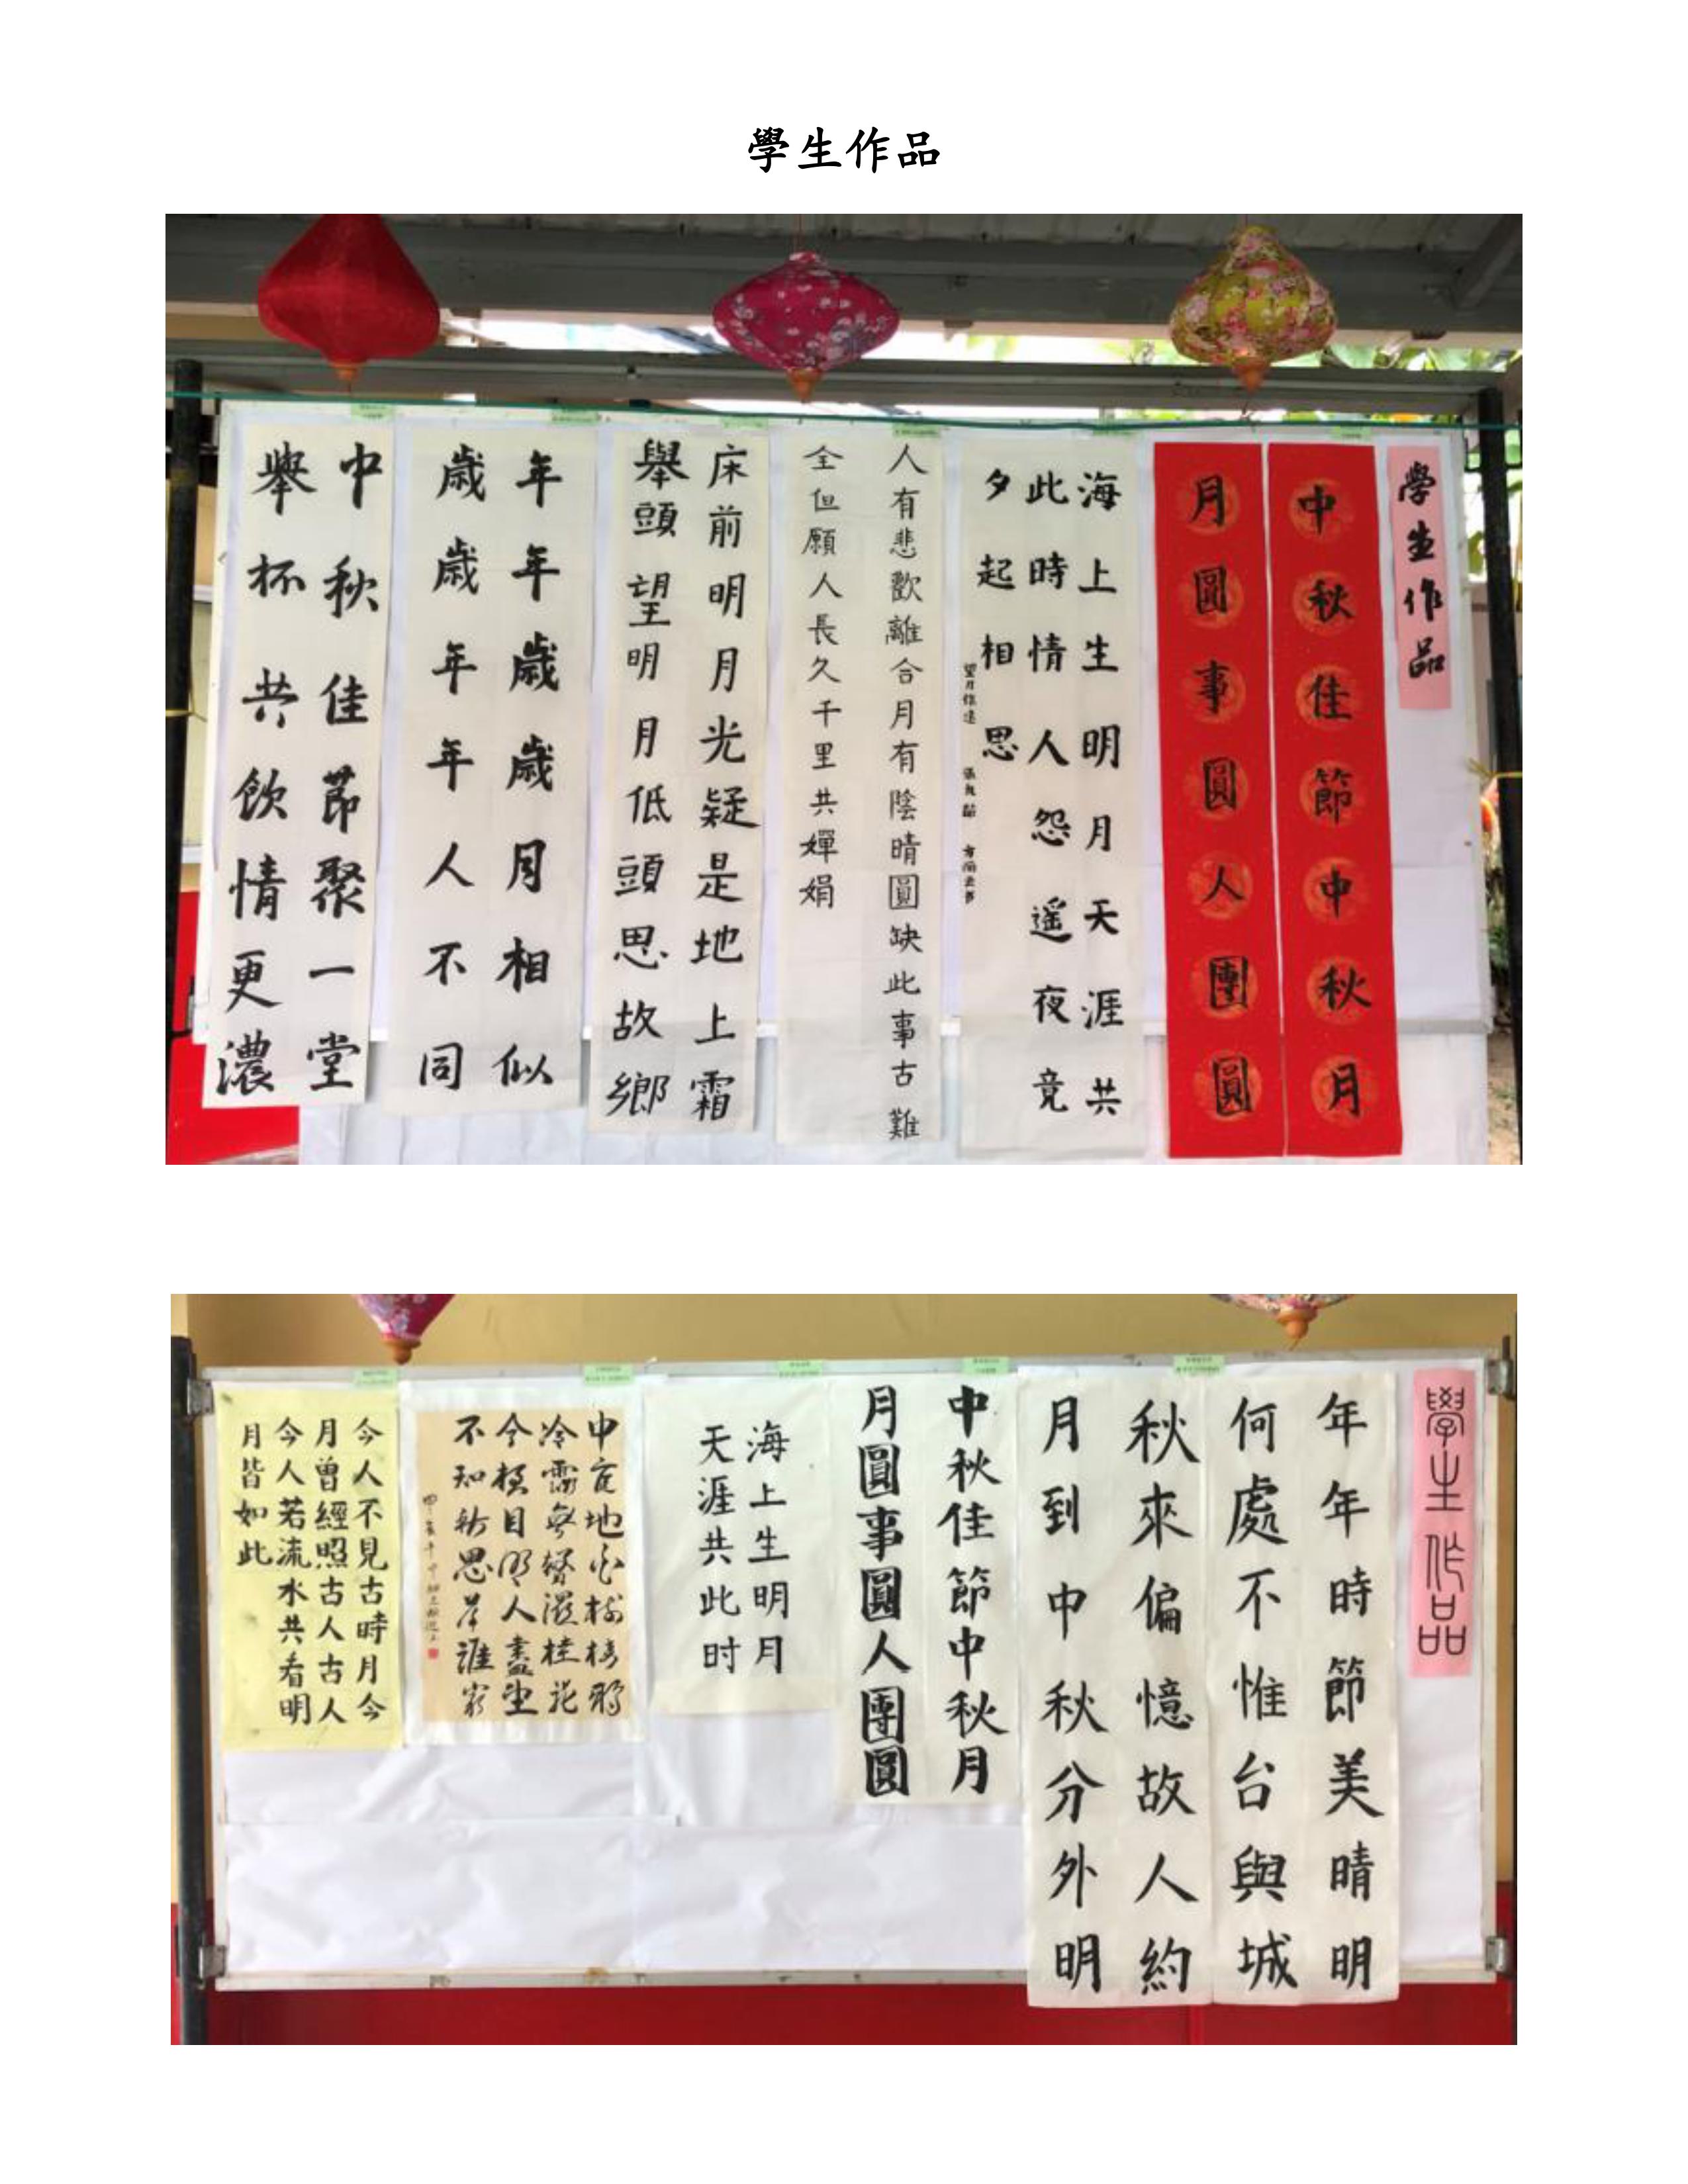 學生作品
學生作品
中秋佳節中秋月
月圓事圓人團圓
海上生明月天涯共
此時情人怨遥夜竟
夕起相思
望月懷遠 張九齡
人有悲歡離合月有陰晴圓缺此事古難
全但願人長久千里共嬋娟
床前明月光疑是地上霜
舉頭望明月低頭思故鄉
年年歲歲月相似
歲歲年年人不同
中秋佳節聚一堂
舉杯共飲情更濃
學生作品
年年時節美晴明
何處不惟台與城
秋來偏憶故人約
月到中秋分外明
中秋佳節中秋月
月圓事圓人團圓
海上生明月
天涯共此时
中庭地白樹棲鴉
冷露無聲濕桂花
今夜月明人盡望
不知秋思落誰家
今人不見古時月今
月曾經照古人古人
今人若流水共看明
月皆如此